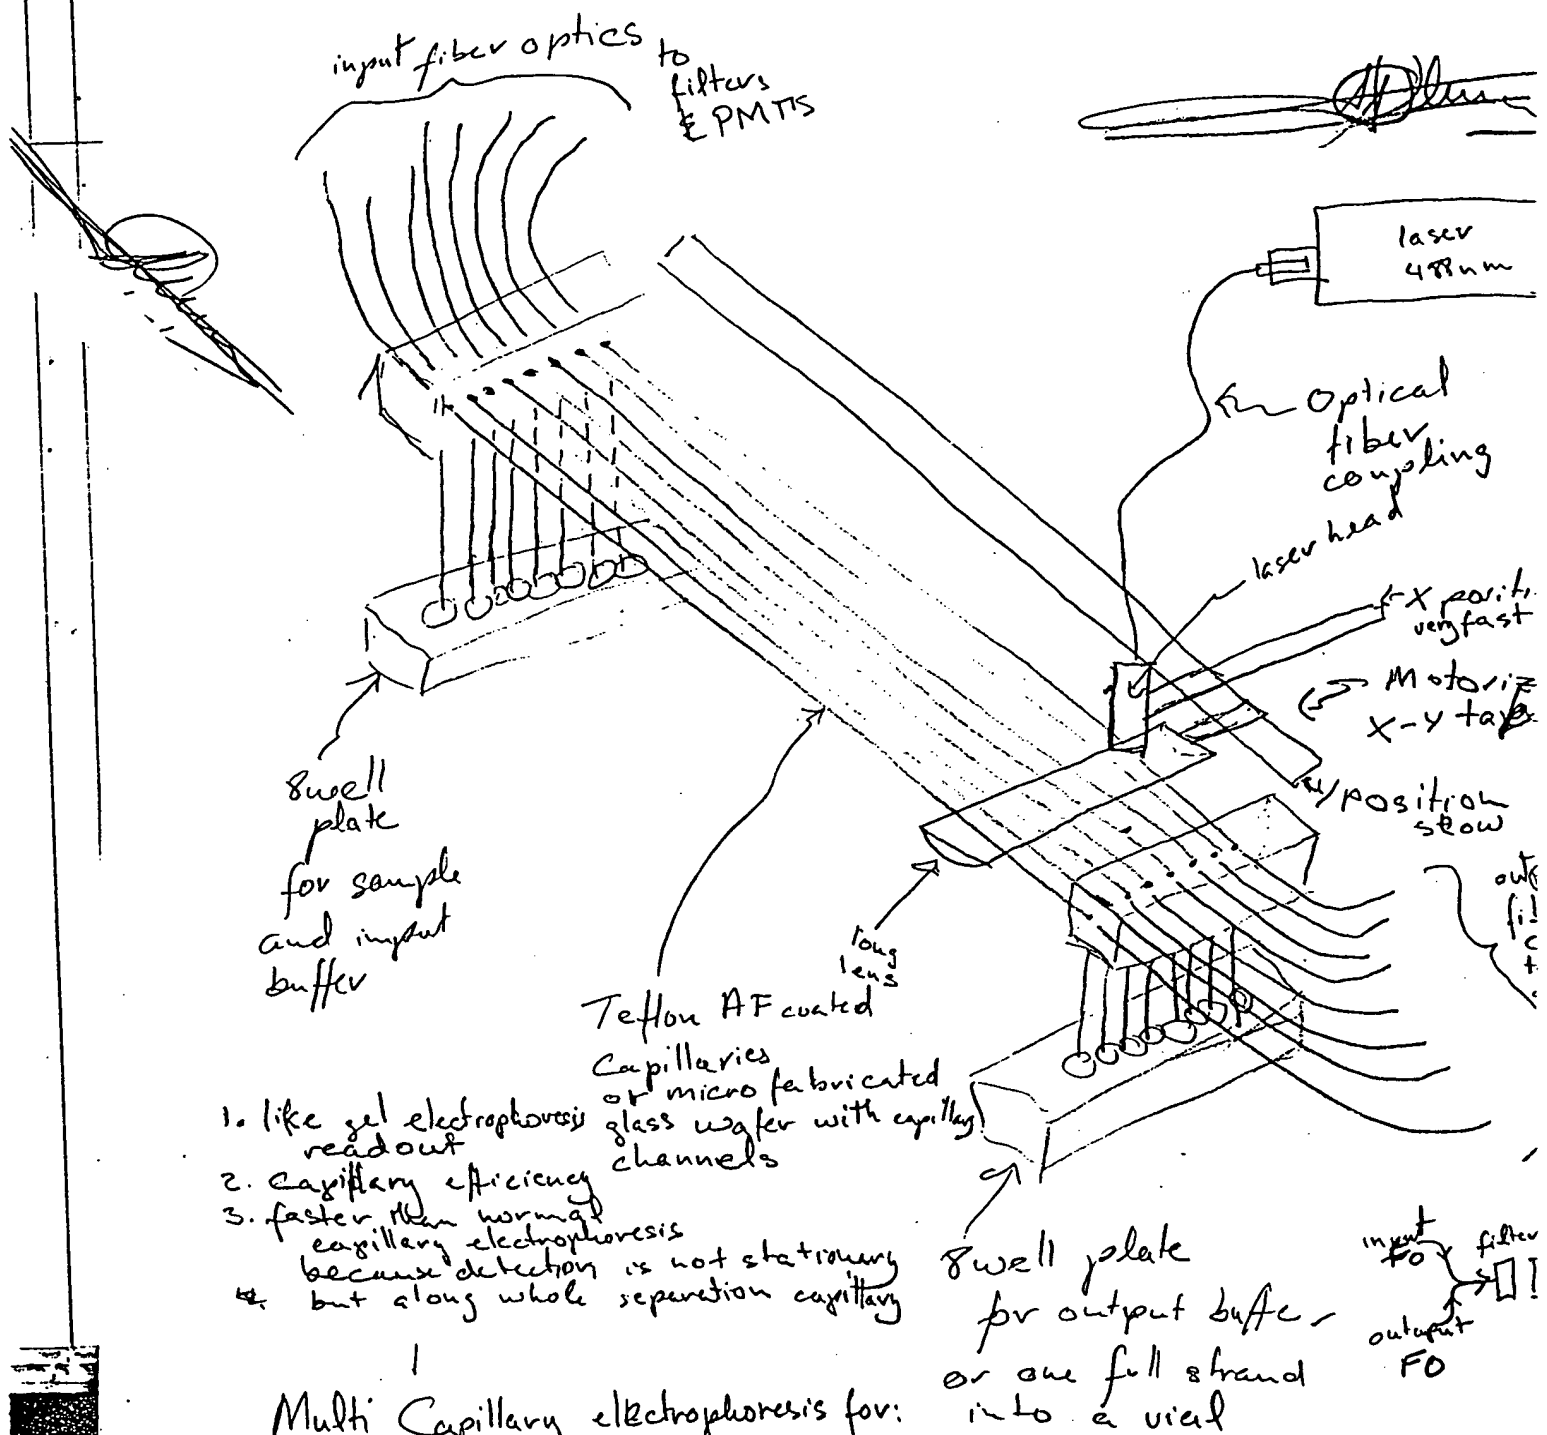 input fiber optics
to
filters
& PMTIS
laser
488nm
Optical
fiber
coupling
laser head
X positi
very fast
Motoriz
X-Y
Y position
slow
8well
plate
for sample
and input
buffer
long
lens
Teflon AF coated
Capillaries
or micro fabricated
glass wafer with capillary
channels
1. like gel electrophoresis
readout
2. Capillary efficiency
3. faster than normal
capillary electrophoresis
because detection is not stationary
but along whole separation capillary
8well plate
for output buffe
or one full strand
into a vial
input
FO
filter
output
FO
Multi Capillary electrophoresis for: